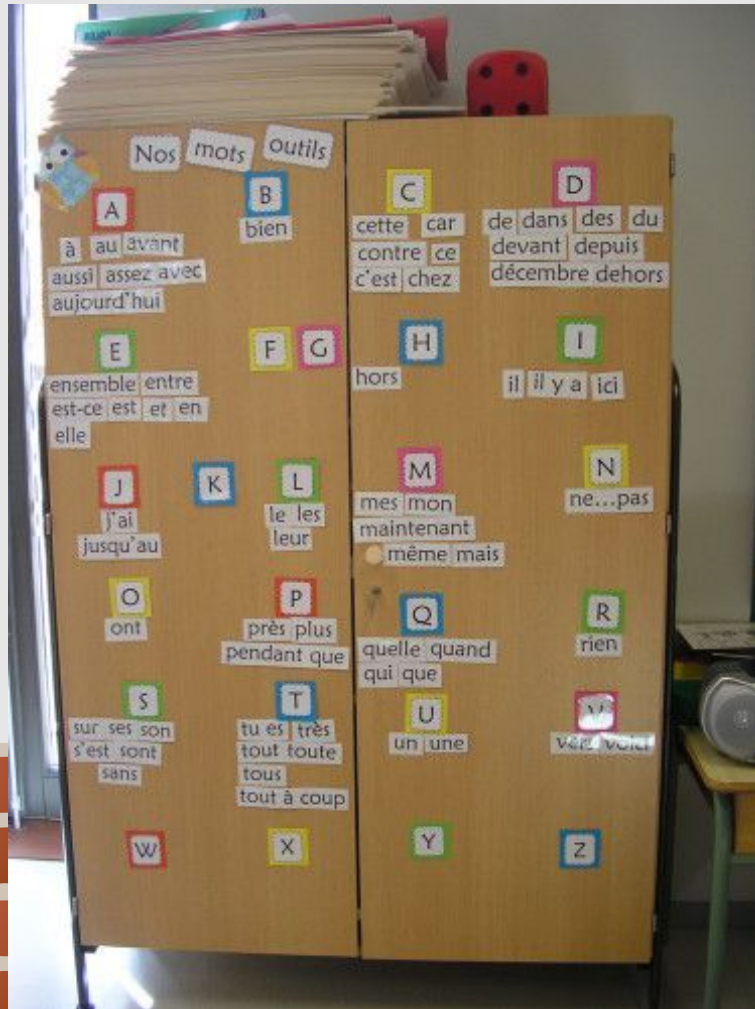 Nos mots outils
A
à au avant
aussi assez avec
aujourd'hui
B
bien
C
cette car
contre ce
c'est chez
D
de dans des du
devant depuis
décembre dehors
E
ensemble entre
est-ce est et en
elle
F G
H
hors
I
il il y a ici
J
j'ai
jusqu'au
K
L
le les
leur
M
mes mon
maintenant
même mais
N
ne...pas
O
ont
P
près plus
pendant que
Q
quelle quand
qui que
R
rien
S
sur ses son
s'est sont
sans
T
tu es très
tout toute
tous
tout à coup
U
un une
V
vers voici
W
X
Y
Z